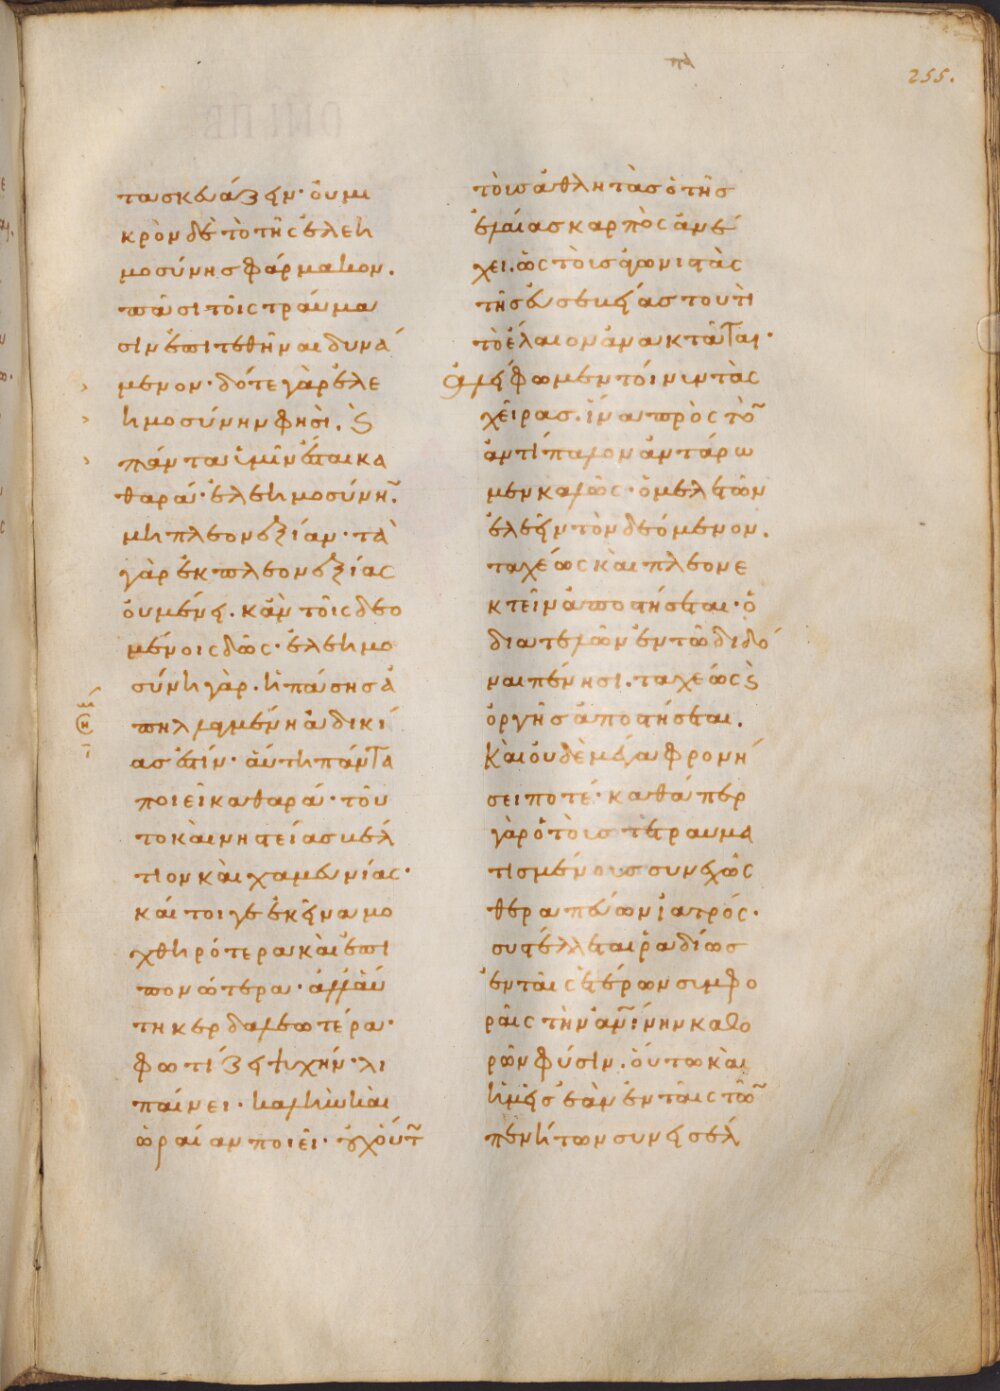 255.
τασκευάζειν· οὐ μι
κρὸν δὲ τὸ τῆς ἐλεη
μοσύνησ φάρμακον.
πᾶσι τοῖς τραύμα
σιν ἐπιτεθῆναι δυνά
μενον· δότε γὰρ ἐλε
ημοσύνην φησὶ. καὶ
πάντα ὑμῖν ἔσται κα
θαρά· ἐλεημοσύνην.
μὴ πλεονεξίαν· τὰ
γὰρ ἐκ πλεονεξίας
οὐ μένει. κἂν τοῖς δεο
μένοις δῶς· ἐλεημο
σύνη γὰρ. ἡ πάσησ ἀ
πηλλαγμένη ἀδικί
ασ ἐστίν· αὕτη πάντα
ποιεῖ καθαρά· τοῦ
το καὶ νηστείασ βελ
τιον καὶ χαμευνίας·
καίτοιγε ἐκεῖνα μο
χθηρότερα καὶ ἐπι
πονώτερα· ἀλλ' αὕ
τη κερδαλεωτέρα·
φωτίζει ψυχήν· λι
παίνει· καλὴν καὶ
ὡραίαν ποιεῖ· οὐχ οὕτω
τοὺσ ἀθλητὰσ ὁ τῆσ
ἐλαίασ καρπὸς ἀνέ
χει. ὡς τοὺσ ἀγωνιστὰς
τῆσ εὐσεβείασ τουτὶ
τὸ ἔλαιον ἀνακτᾶται·
ἀλείφωμεν τοίνυν τὰς
χεῖρασ. ἵνα πρὸς τὸν
ἀντίπαλον ἀντάρω
μεν καλῶς· ὁ μελετῶν
ἐλεεῖν τὸν δεόμενον.
ταχέως καὶ πλεονε
κτεῖν ἀποστήσεται· ὁ
διατελῶν ἐν τῶ διδό
ναι πένησι. ταχέως καὶ
ὀργῆσ ἀποστήσεται.
Καὶ οὐδὲ μέγα φρονή
σει ποτέ· καθάπερ
γὰρ ὁ τοὺσ τετραυμα
τισμένουσ συνεχῶς
θεραπεύων ἰατρός·
συστέλλεται ῥαδίωσ
ἐν ταῖς ἑτέρων συμφο
ραῖς τὴν ἀνίνην καθο
ρῶν φύσιν. οὕτω καὶ
ἡμεῖσ ἐὰν ἐν ταῖς τῶν
πενήτων συνεισέλ